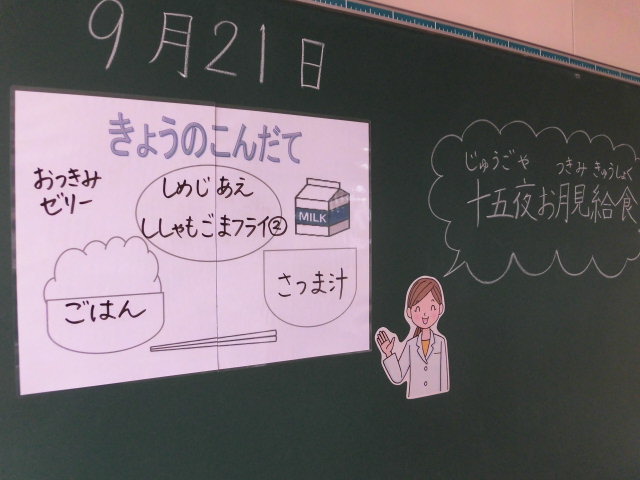 9月21日
きょうのこんだて
おつきみ
ゼリー
しめじあえ
ししゃもごまフライ②
MILK
ごはん
さつま汁
じゅうごや つきみ きゅうしょく
十五夜お月見給食